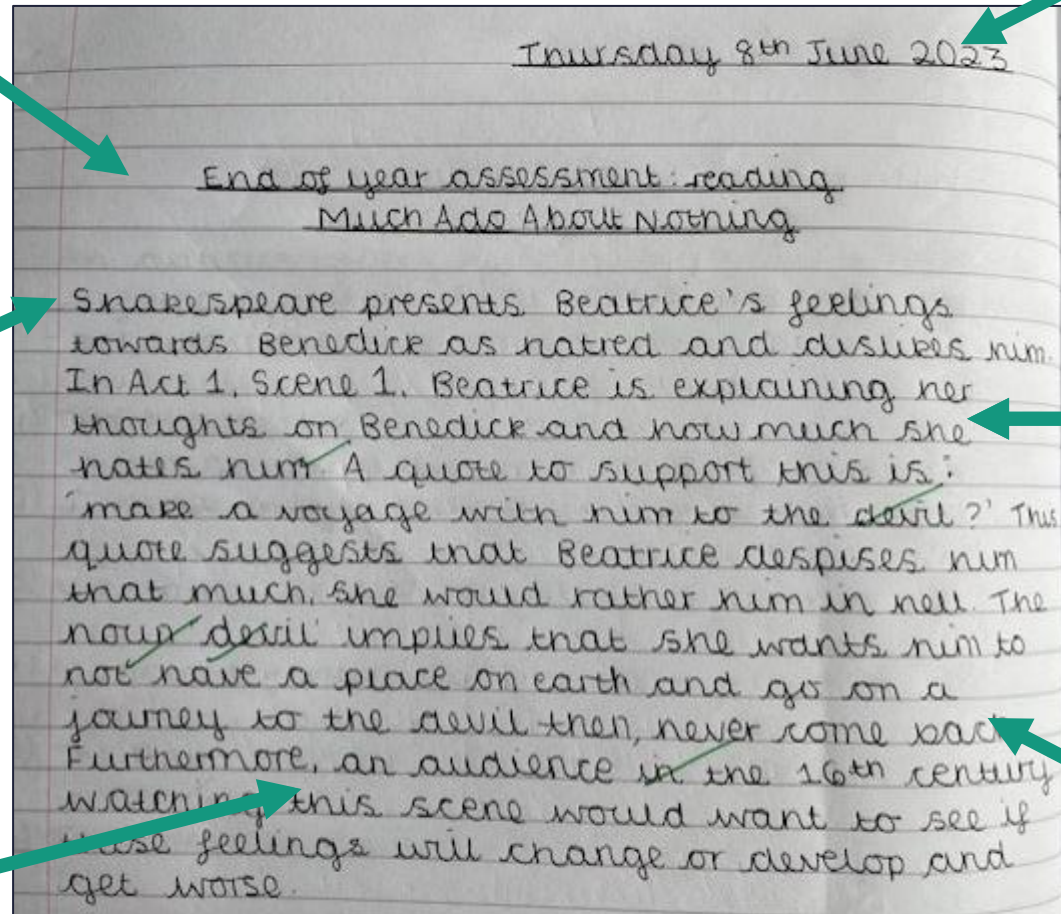 Thursday 8th June 2023
End of year assessment: reading
Much Ado About Nothing
Shakespeare presents Beatrice's feelings
towards Benedick as hatred and dislikes him.
In Act 1, Scene 1, Beatrice is explaining her
thoughts on Benedick and how much she
hates him. A quote to support this is:
'make a voyage with him to the devil?' This
quote suggests that Beatrice despises him
that much, she would rather him in hell. The
noun 'devil' implies that she wants him to
not have a place on earth and go on a
journey to the devil then, never come back
Furthermore, an audience in the 16th century
watching this scene would want to see if
these feelings will change or develop and
get worse.